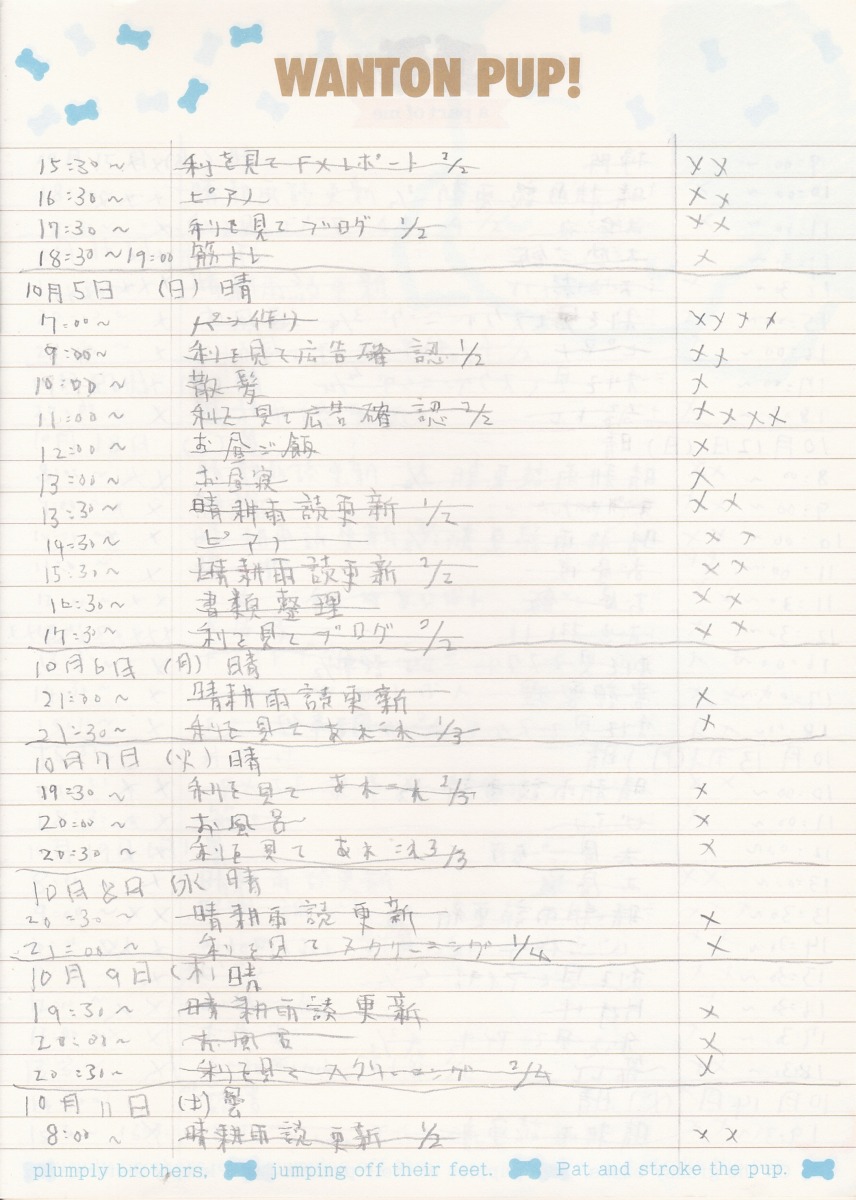 WANTON PUP!
15:30～ 利を見て FXレポート 2/2 ××
16:30～ ピアノ ××
17:30～ 利を見て ブログ 1/2 ××
18:30～19:00 筋トレ ×
10月5日 (日) 晴
7:00～ パン作り ××××
9:00～ 利を見て広告確認 1/2 ××
10:00～ 散髪 ×
11:00～ 利を見て広告確認 2/2 ××××
12:00～ お昼ご飯 ×
13:00～ お昼寝 ×
13:30～ 晴耕雨読更新 1/2 ××
14:30～ ピアノ ××
15:30～ 晴耕雨読更新 2/2 ××
16:30～ 書類整理 ××
17:30～ 利を見てブログ 2/2 ××
10月6日 (月) 晴
21:00～ 晴耕雨読更新 ×
21:30～ 利を見て あれこれ 1/3 ×
10月7日 (火) 晴
19:30～ 利を見て あれこれ 2/3 ×
20:00～ お風呂 ×
20:30～ 利を見て あれこれ 3/3 ×
10月8日 (水) 晴
20:30～ 晴耕雨読更新 ×
21:00～ 利を見てスクリーニング 1/4 ×
10月9日 (木) 晴
19:30～ 晴耕雨読更新 ×
20:00～ お風呂 ×
20:30～ 利を見て スクリーニング 2/4 ×
10月11日 (土) 曇
8:00～ 晴耕雨読更新 1/2 ××
plumply brothers, jumping off their feet. Pat and stroke the pup.